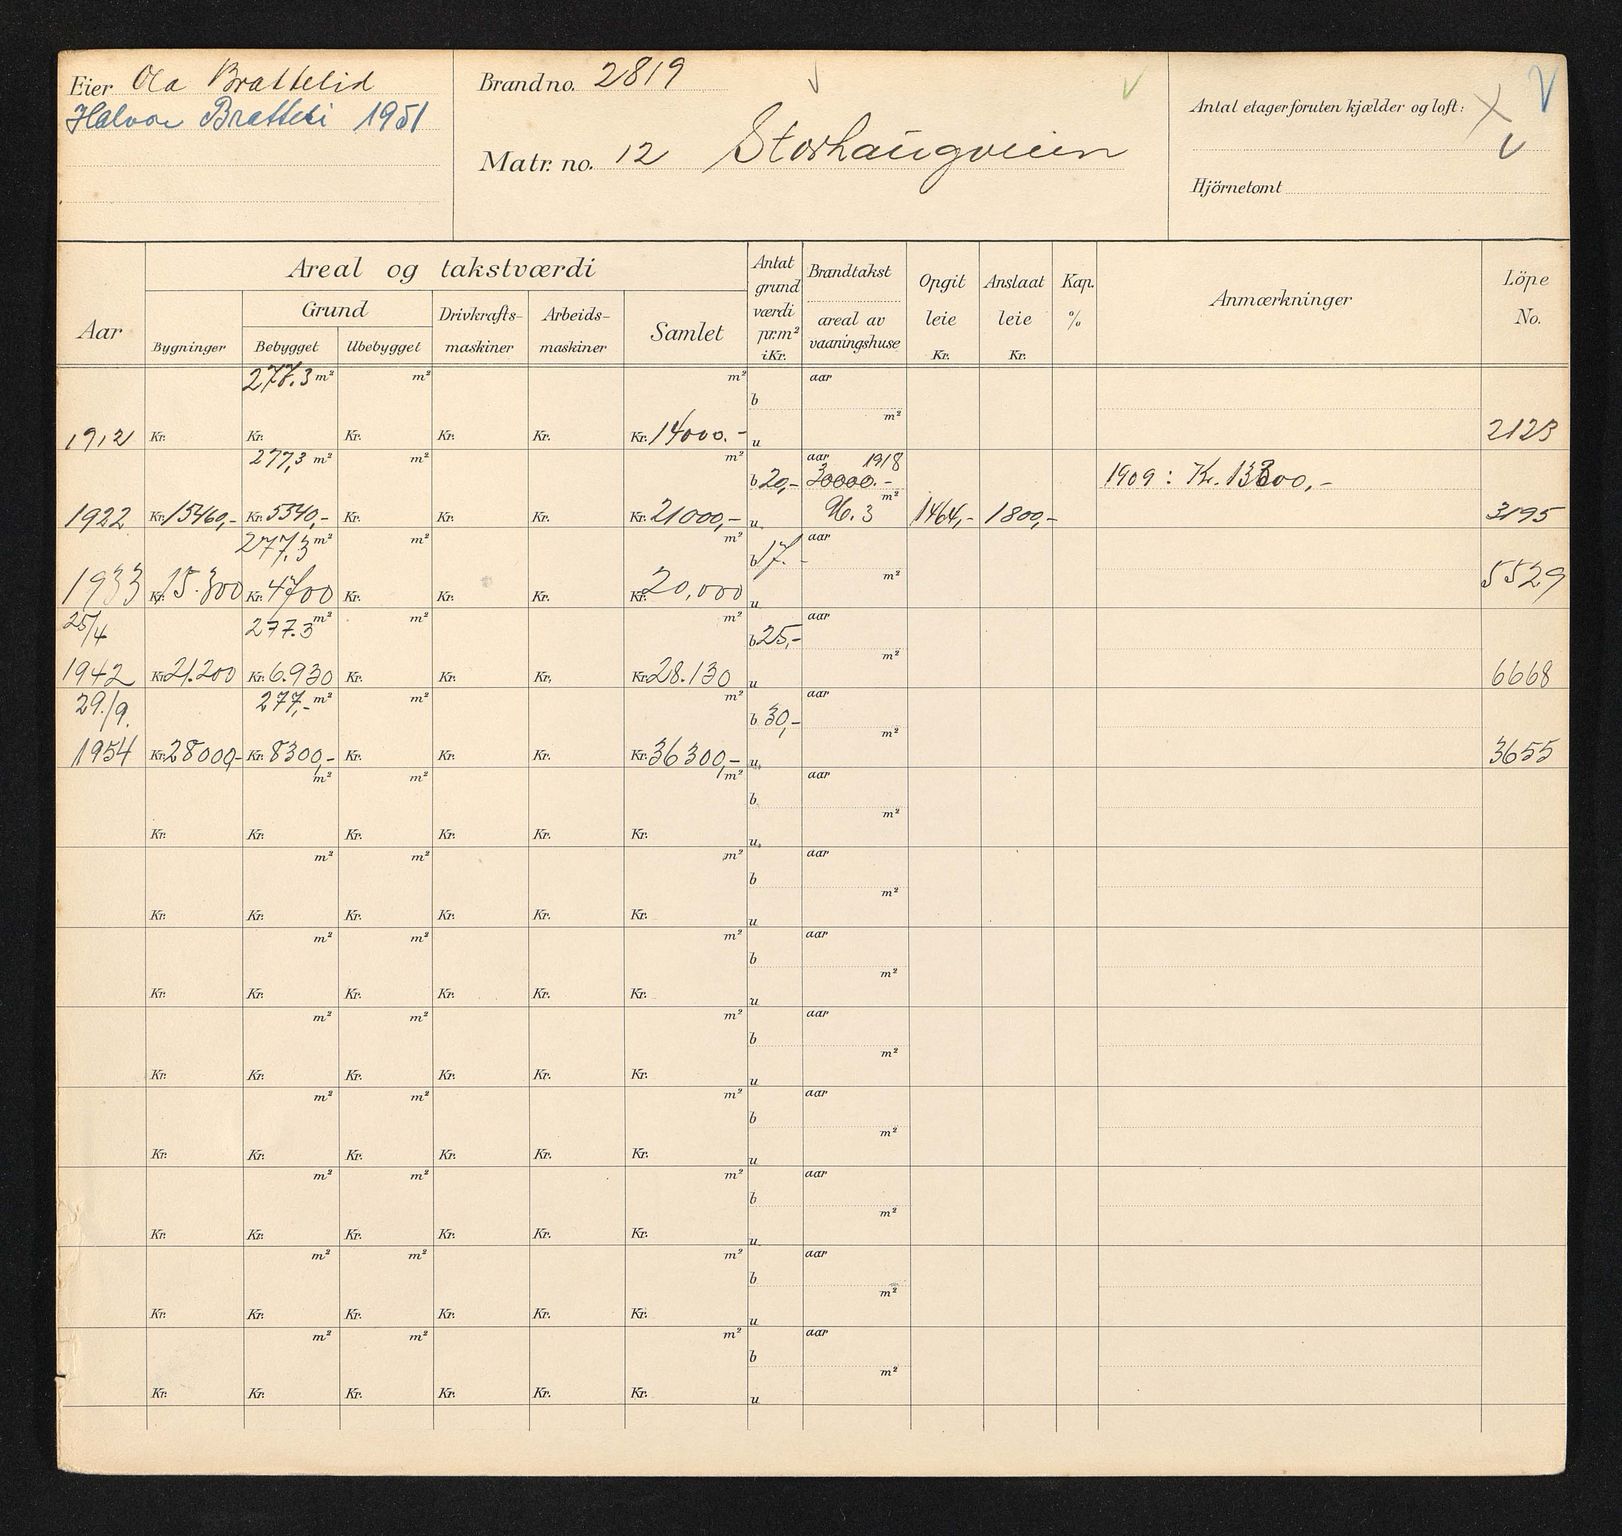 Eier Ola Brattelid
Halvor Bratteli 1951
Brand no. 2819
Matr. no. 12 Storhaugveien
Antal etager foruten kjælder og loft:
Hjörnetomt
Areal og takstværdi
Aar
Bygninger
Grund
Bebygget
Ubebygget
Drivkrafts-
maskiner
Arbeids-
maskiner
Samlet
Antat
grund
værdi
pr.m²
i Kr.
Brandtakst
areal av
vaaningshuse
Opgit
leie
Kr.
Anslaat
leie
Kr.
Kap.
%
Anmærkninger
Löpe
No.
277.3 m² m² m² aar
b
m²
1912 Kr. Kr. Kr. Kr. Kr. Kr. 14000.- u 2123
277,3 m² m² m² aar 1918
b 20,- 30000.- 1909: Kr.
m²
1922 Kr. 15460,- Kr. 5340,- Kr. Kr. Kr. Kr. 21000,- u 3 1464,- 1800,- 3195
277,3 m² m² m² aar
b 17.-
m²
1933 Kr. 15.300 Kr. 4700 Kr. Kr. Kr. Kr. 20,000 u 5529
25/4 277.3 m² m² m² aar
b 25,-
m²
1942 Kr. 21.200 Kr. 6.930 Kr. Kr. Kr. Kr. 28.130 u 6668
29./9. 277,- m² m² m² aar
b 30,-
m²
1954 Kr. 28000,- Kr. 8300,- Kr. Kr. Kr. Kr. 36300,- u. 3655
m² m² m² aar
b
m²
Kr. Kr. Kr. Kr. Kr. Kr. u.
m² m² m² aar
b
m²
Kr. Kr. Kr. Kr. Kr. Kr. u
m² m² m² aar
b
m²
Kr. Kr. Kr. Kr. Kr. Kr. u
m² m² m² aar
b
m²
Kr. Kr. Kr. Kr. Kr. Kr. u
m² m² m² aar
b
m²
Kr. Kr. Kr. Kr. Kr. Kr. u
m² m² m² aar
b
m²
Kr. Kr. Kr. Kr. Kr. Kr. u
m² m² m² aar
b
m²
Kr. Kr. Kr. Kr. Kr. Kr. u
m² m² m² aar
b
m²
Kr. Kr. Kr. Kr. Kr. Kr. u